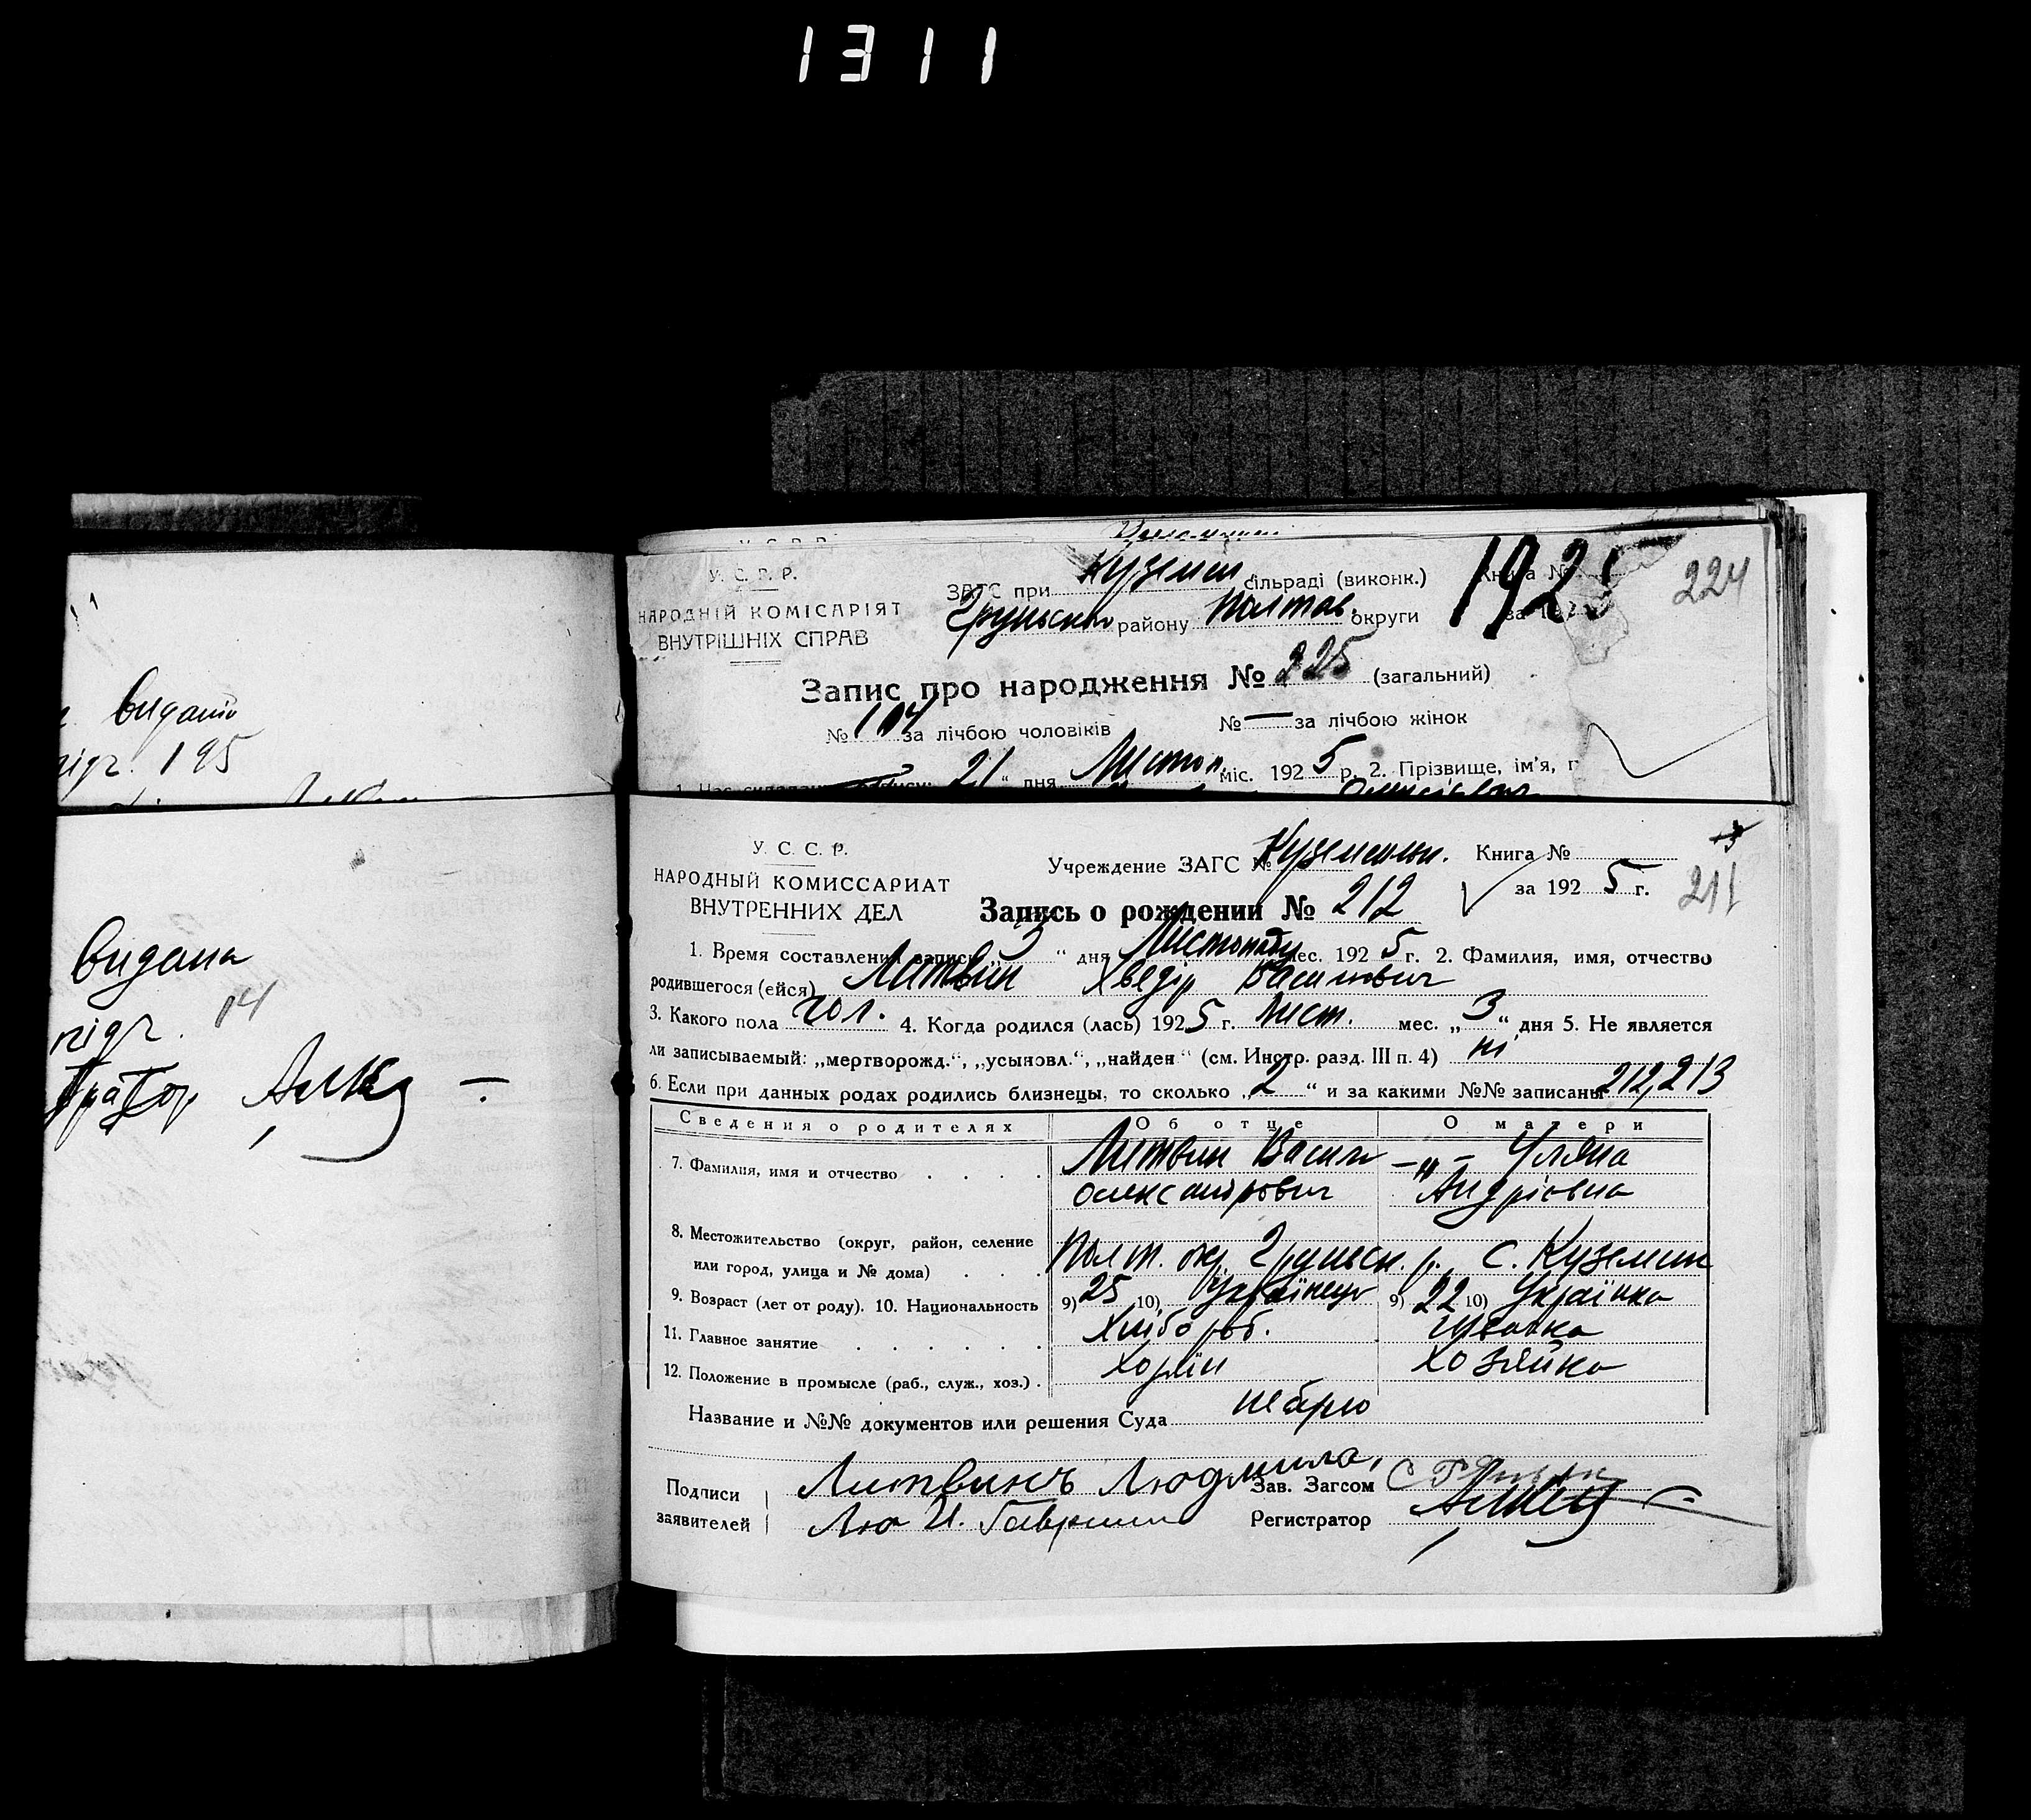 1311
видано
підг. 195
видана
підг. 14
У. С. Р. Р.
НАРОДНІЙ КОМІСАРІЯТ
ВНУТРІШНІХ СПРАВ
ЗАГС при Куземен. сільраді (виконк.) Книга №
Груньсько району Полтав. округи за 192 1925
224
Запис про народження № 225 (загальний)
№ 104 за лічбою чоловіків № — за лічбою жінок
21 " дня Листоп. міс. 1925 р. 2. Прізвище, ім'я, п
У. С. С. Р.
НАРОДНЫЙ КОМИССАРИАТ
ВНУТРЕННИХ ДЕЛ
Учреждение ЗАГС № Куземен. Книга №
за 1925 г.
211
Запись о рождении № 212
1. Время составления записи „3" дня Листопаду мес. 1925 г. 2. Фамилия, имя, отчество
родившегося (ейся) Литвин Хведір Васильович
3. Какого пола чол. 4. Когда родился (лась) 1925 г. Лист. мес. „3" дня 5. Не является
ли записываемый: „мертворожд.", „усыновл.", „найден" (см. Инстр. разд. III п. 4) ні
6. Если при данных родах родились близнецы, то сколько „2" и за какими №№ записаны 212, 213
Сведения о родителях Об отце О матери
7. Фамилия, имя и отчество Литвин Василь —"— Уляна
Олександрович Андріівна
8. Местожительство (округ, район, селение Полт. окр. Груньск. р. с. Куземин
или город, улица и № дома)
9. Возраст (лет от роду). 10. Национальность 9) 25 10) Українець 9) 22 10) Українка
11. Главное занятие Хлібороб.
12. Положение в промысле (раб., служ., хоз.) Хозяїн Хозяйка
Название и №№ документов или решения Суда
Подписи Литвинъ Людмила, Зав. Загсом
заявителей Регистратор